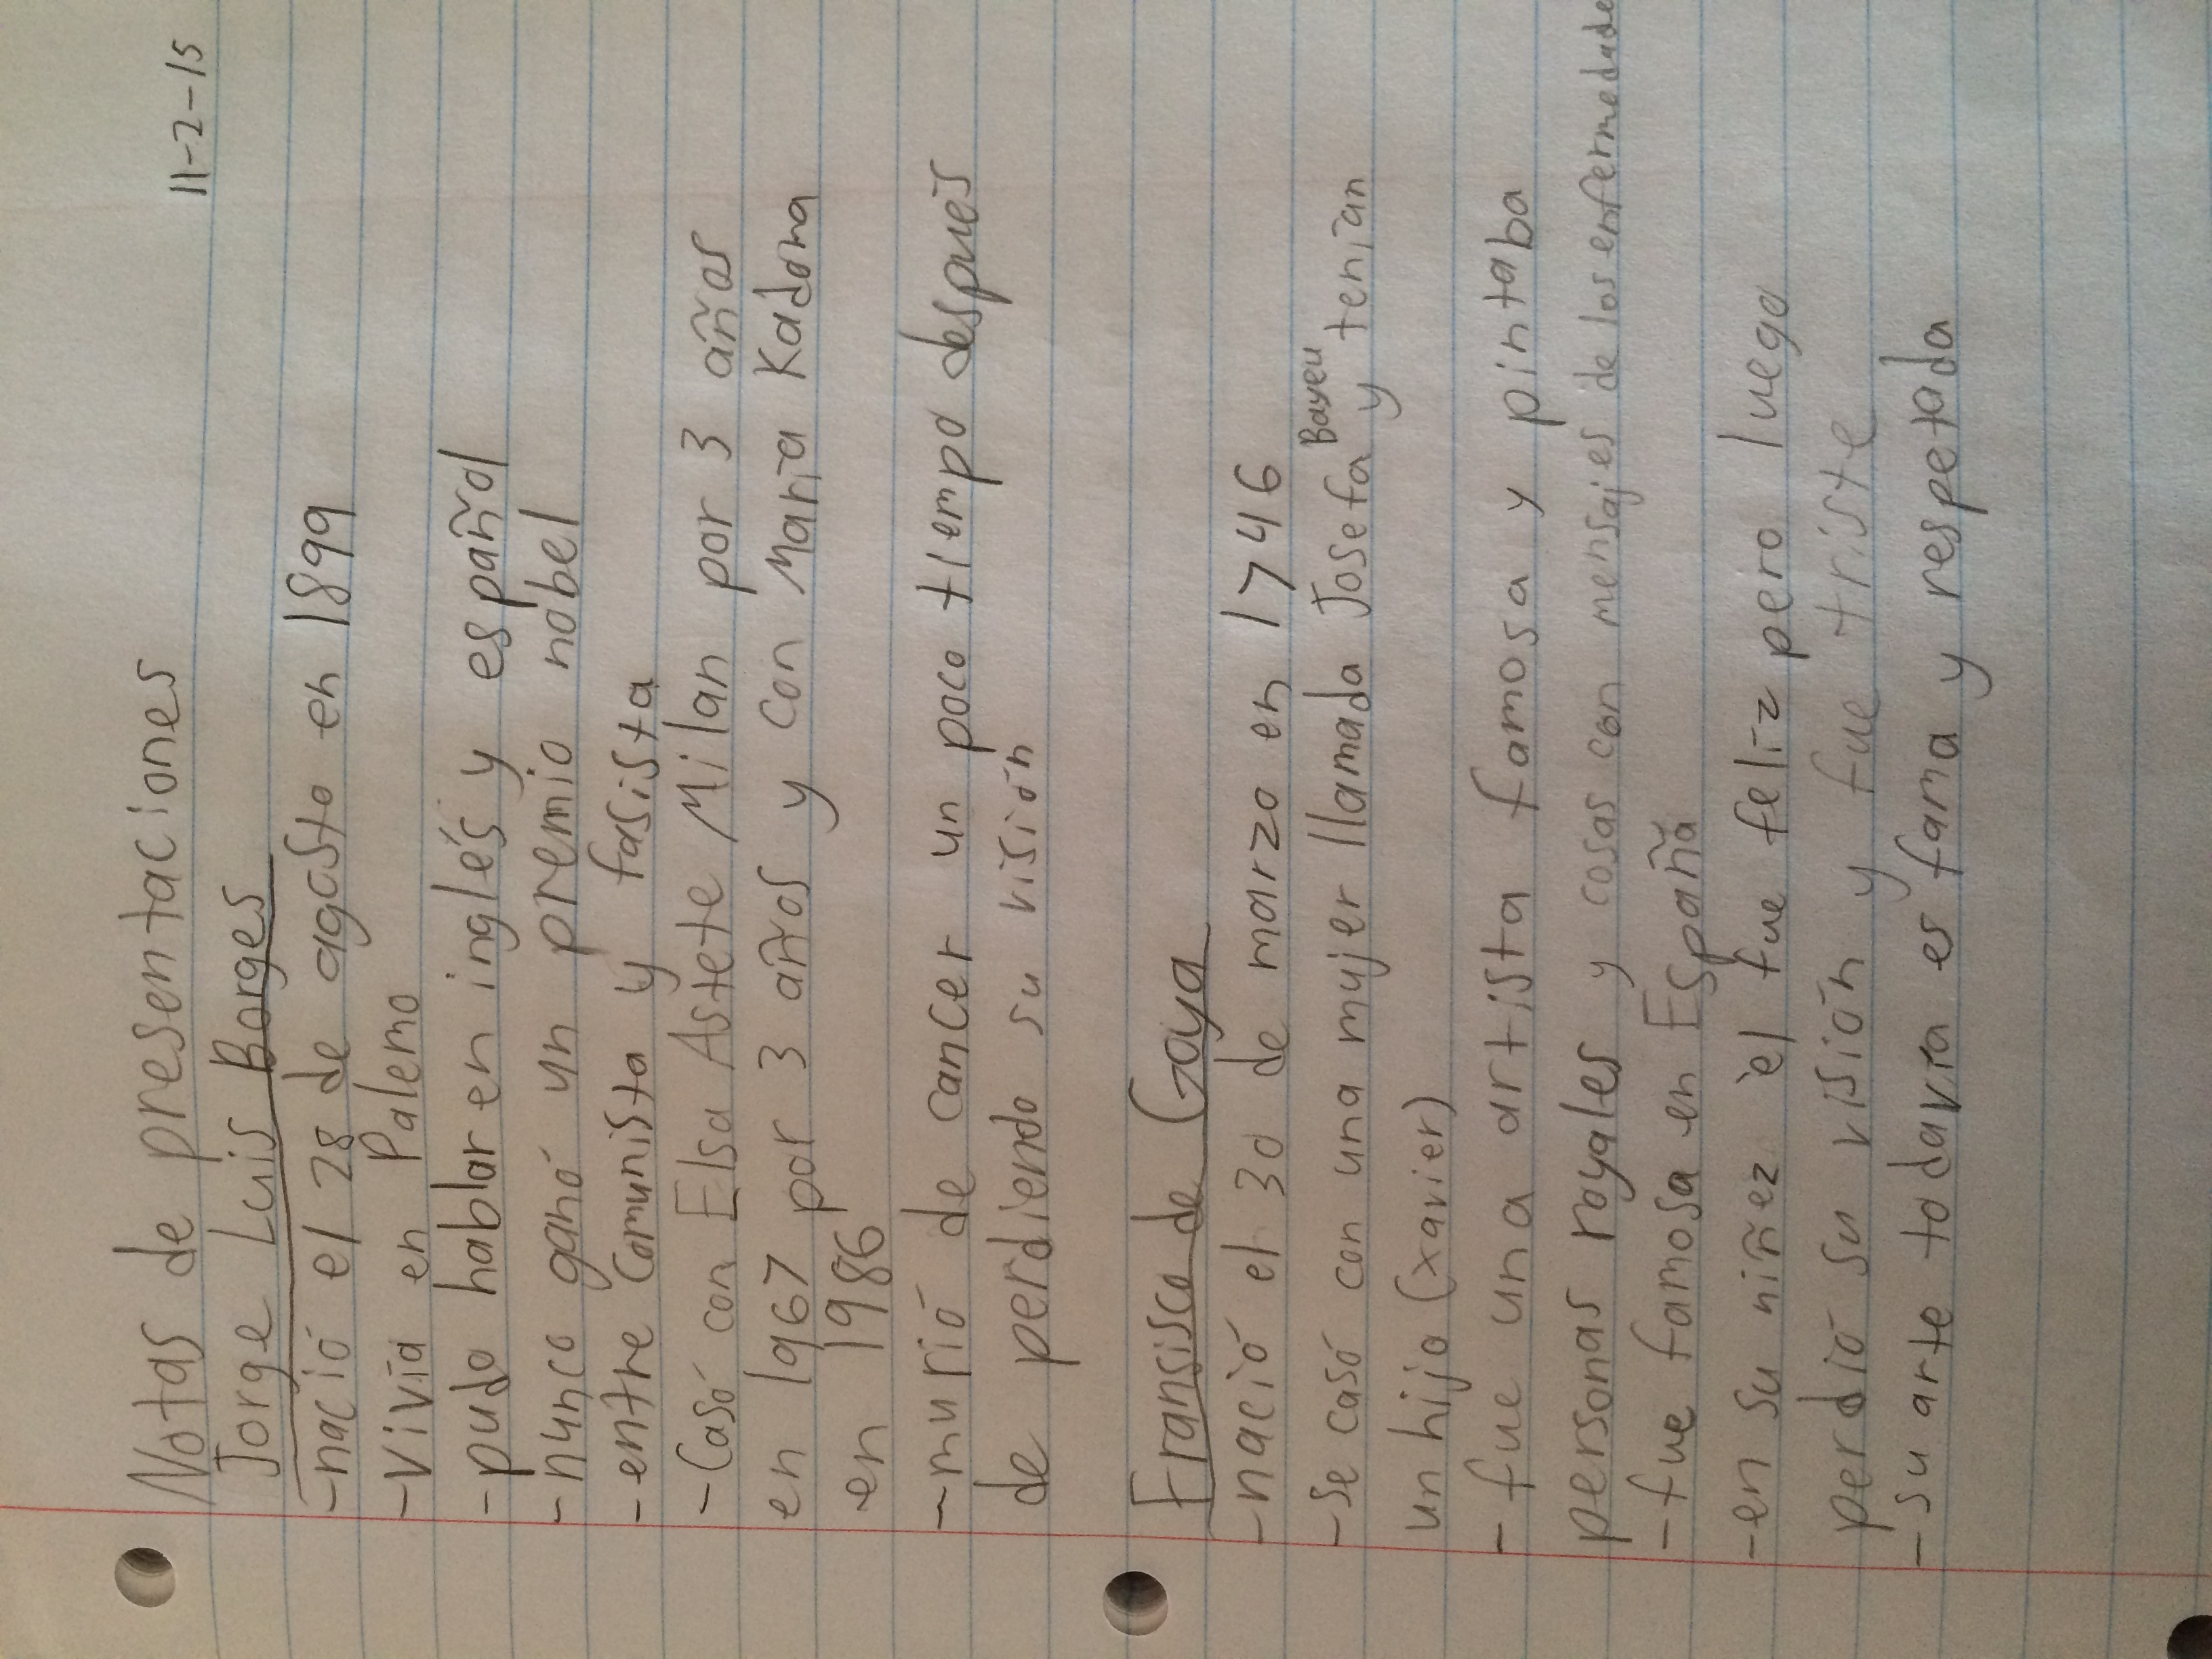 11-2-15
Notas de presentaciones
Jorge Luis Borges
-nació el 28 de agosto en 1899
-vivía en Palemo
-pudo hablar en inglés y español
-nunco ganó un premio nobel
-entre Comunista y fasista
-Casó con Elsa Astete Milan por 3 años
en 1967 por 3 años y con María Kadoma
en 1986
-murió de cancer un poco tiempo despues
de perdiendo su visión
Fransisco de Goya
-nació el 30 de marzo en 1746
-se casó con una mujer llamada Josefa Bayeu y tenían
un hijo (xavier)
-fue una artista famosa y pintaba
personas royales y cosas con mensajes de los enfermedade
-fue famosa en España
-en su niñez èl fue feliz pero luego
perdió su visión y fue triste
-su arte todavía es fama y respetada